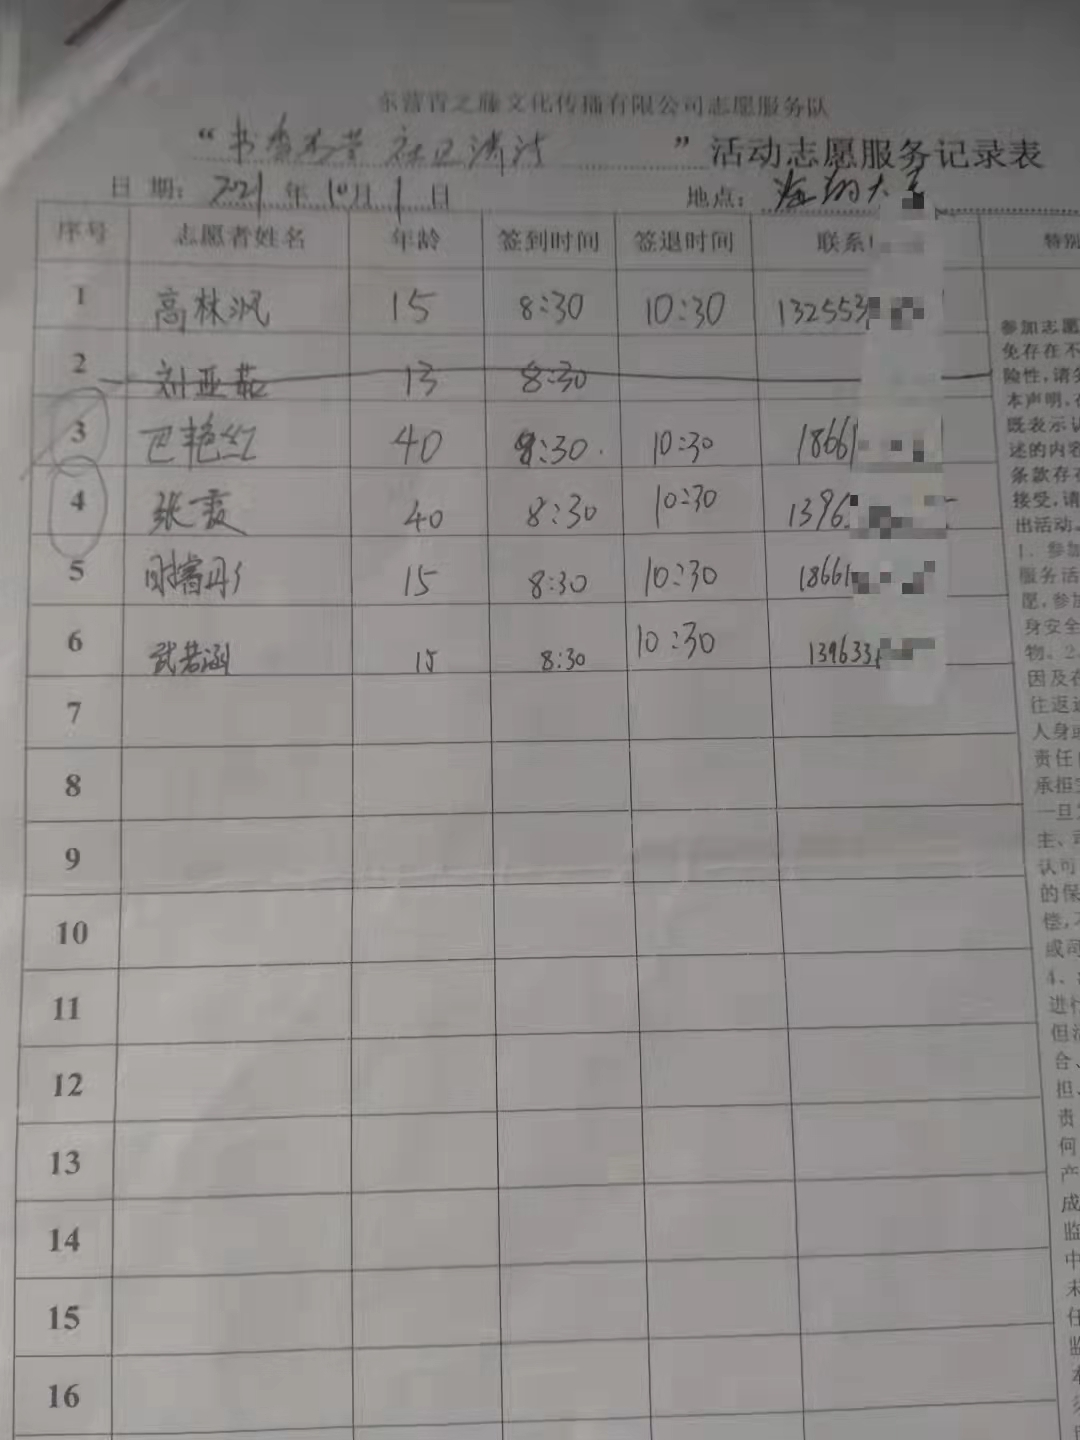 东营青之藤文化传播有限公司志愿服务队
“书香 社区清洁”活动志愿服务记录表
日期：2021年10月1日 地点：
序号 志愿者姓名 年龄 签到时间 签退时间 联系 特别
1 高林沨 15 8:30 10:30 132553
2 刘亚茹 13 8:30
3 巴艳红 40 8:30 10:30 18661
4 张霞 40 8:30 10:30 1396
5 时睿彤 15 8:30 10:30 18661
6 武若涵 15 8:30 10:30 139633
7
8
9
10
11
12
13
14
15
16
参加志愿
免存在不
险性，请务
本声明，在
既表示认
述的内容
条款存在
接受，请
出活动。
1、参加
服务活
愿，参加
身安全
物。2、
因及在
往返途
人身或
责任由
承担
一旦
主、
认可
的保
偿，
或司
4、
进行
但
合、
担、
责
何
产
成
监
中
未
任
监
本